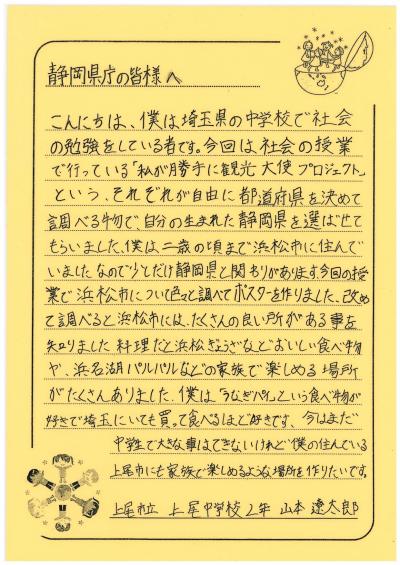 静岡県庁の皆様へ
こんにちは、僕は埼玉県の中学校で社会
の勉強をしている者です。今回は社会の授業
で行っている「私が勝手に観光大使プロジェクト」
という、それぞれが自由に都道府県を決めて
調べる物で、自分の生まれた静岡県を選ばせて
もらいました、僕は二歳の頃まで浜松市に住んで
いましたなので少しだけ静岡県と関わりがあります。今回の授
業で浜松市について色々と調べてポスターを作りました、改め
て調べると浜松市には、たくさんの良い所がある事を
知りました 料理だと浜松ぎょうざなどおいしい食べ物
や、浜名湖パルパルなどの家族で楽しめる場所
がたくさんありました、僕は「うなぎパイ」という食べ物が
好きで埼玉にいても買って食べるほど好きです、今はまだ
中学生で大きな事はできないけれど僕の住んでいる
上尾市にも家族で楽しめるような場所を作りたいです。
上尾市立 上尾中学校 2年 山本 遼太郎